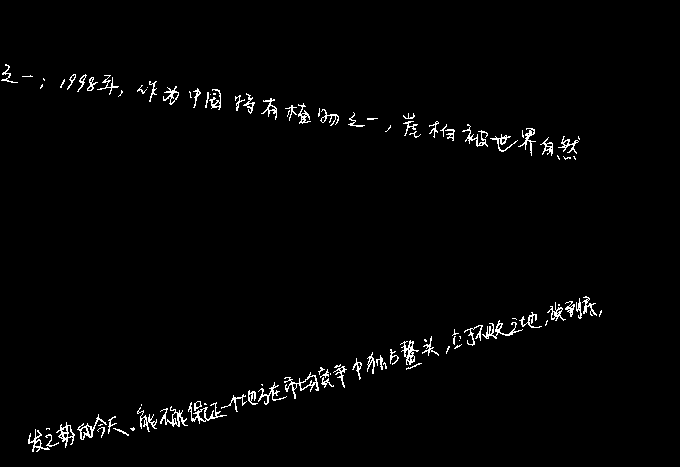 之一；1998年，作为中国特有植物之一，崖柏被世界自然
发之势的今天。能不能保证一个地方在市场竞争中独占鳌头，立于不败之地，说到底，